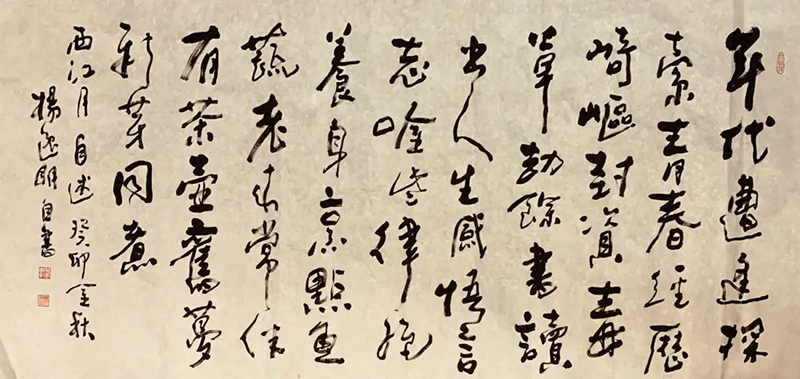 年代遭逢探
索青春經歷
崎嶇封資毒
草劫餘書讀
出人生感悟言
志唫些律絕
養身烹點魚
蔬老來常伴
有茶壺舊夢
新芽同煮
西江月 自述 癸卯金秋
楊逸明自書